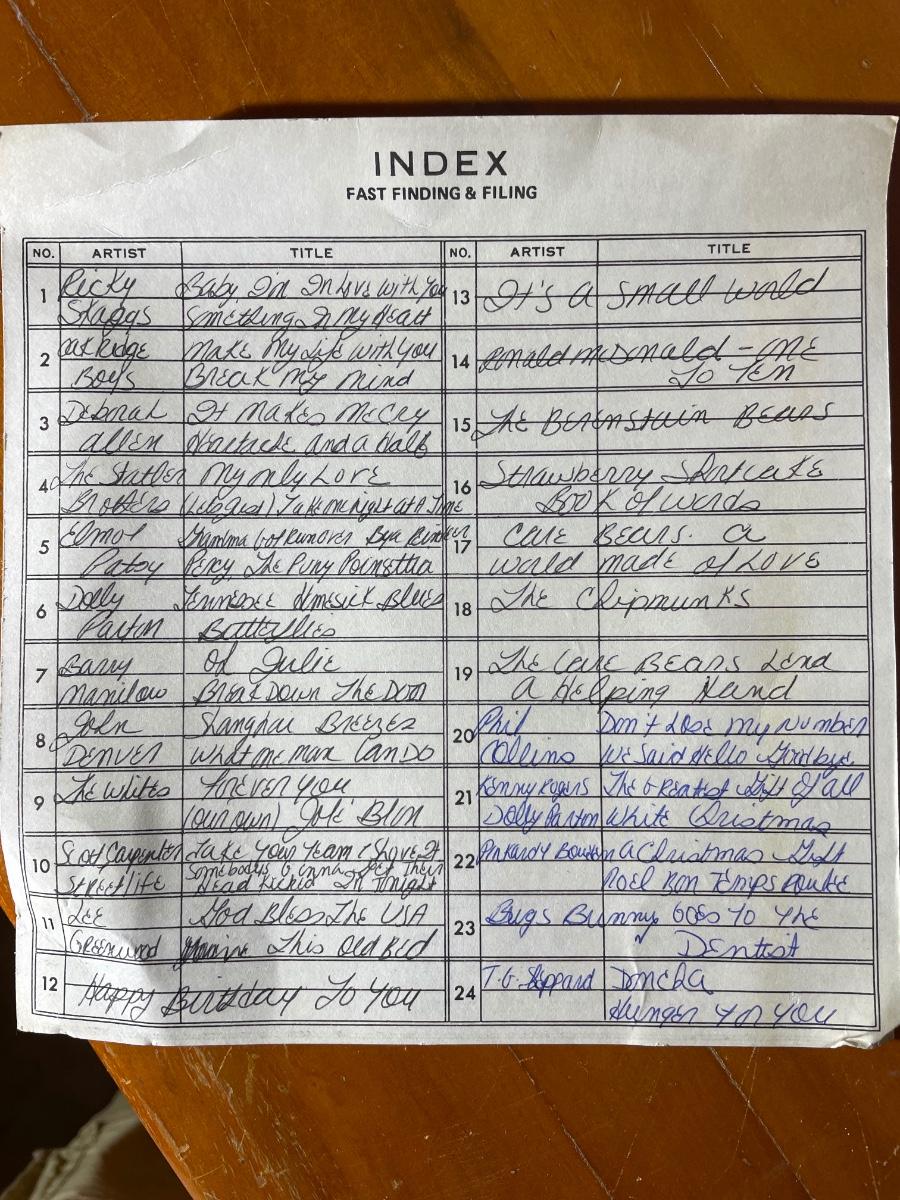 INDEX
FAST FINDING & FILING
NO. ARTIST TITLE
1 Ricky Baby I'm In Love with You
Skaggs Something In My Heart
2 Oak Ridge Make My Life with You
Boys Break My Mind
3 Deborah It Makes Me Cry
Allen Heartache and a Half
4 The Statler My only Love
Brothers Take me night at A Time
5 Elmo & Gramma Got Runover By a
Patsy Percy, The Puny Poinsettia
6 Dolly Tennessee Homesick Blues
Parton Butterflies
7 Barry Oh Julie
Manilow Break Down The Door
8 John Shanghai Breezes
DENVER What one man Can DO
9 The Whites Forever You
(our own) Jole' Blon
10 Scott Carpenter Take Your Team & Shove It
Streetlife Somebody's Gonna Get Their
Head Kicked In Tonight
11 LEE God Bless The USA
Greenwood This old Bed
12 Happy Birthday To You
NO. ARTIST TITLE
13 It's a small world
14 Ronald McDonald - ONE
To Ten
15 The BERENSTAIN BEARS
16 Strawberry Shortcake
Book of words
17 CARE BEARS. a
world made of LOVE
18 The Chipmunks
19 The CARE BEARS Lend
a Helping Hand
20 Phil Don't Lose my Number
Collins We Said Hello Goodbye.
21 Kenny Rogers The Greatest Gift Of all
Dolly Parton White Christmas
22 Pinkard & Bowden A Christmas Gift
Noel Bon Temps Roule
23 Bugs Bunny Goes To The
Dentist
24 T.G. Sheppard Doncha
Hunger For You